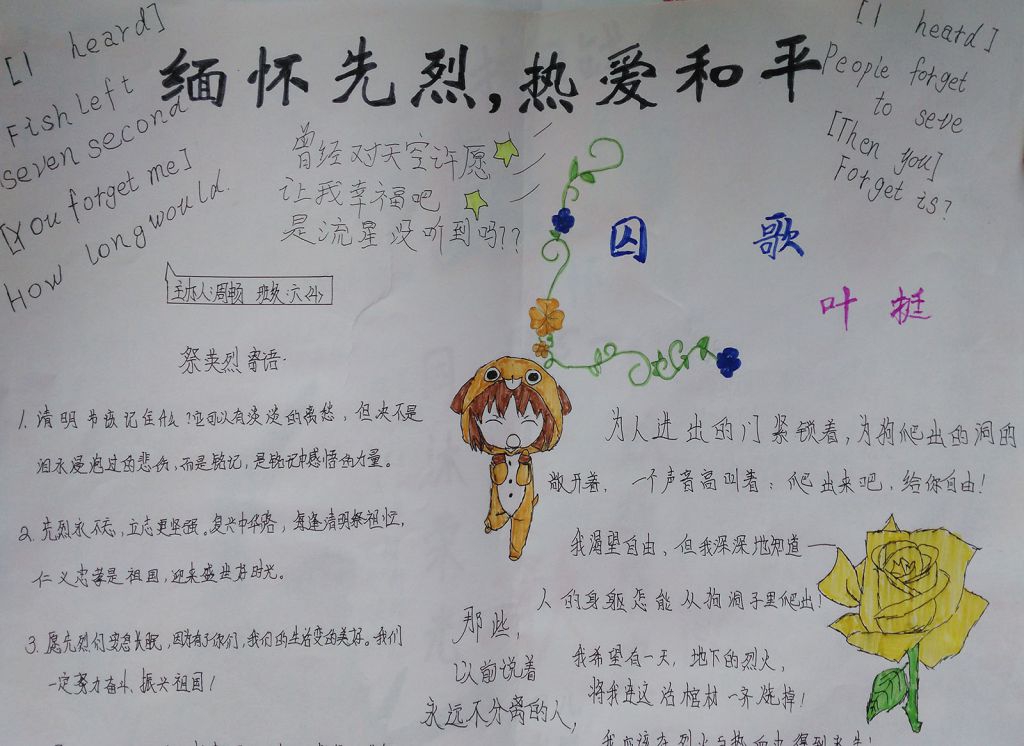 [I heard]
Fish left
seven second
[You forget me]
How long would.
缅怀先烈,热爱和平
[I heard]
People forget
to seve
[Then you]
Forget is?
曾经对天空许愿
让我幸福吧
是流星没听到吗??
主办人:周畅 班级:六〈4〉
祭英烈寄语.
1. 清明节该记住什么?它可以有淡淡的离愁,但决不是
泪水漫过的悲伤,而是铭记,是铭记中感悟的力量。
2. 先烈永不忘,立志更坚强。复兴中华路,每逢清明祭祖忙,
仁义忠孝是祖国,迎来盛世好时光。
3. 愿先烈们安息长眠,因为有了你们,我们的生活变的美好。我们
一定努力奋斗、振兴祖国!
囚歌
叶挺
为人进出的门紧锁着,为狗爬出的洞的
敞开着,一个声音高叫着:爬出来吧,给你自由!
我渴望自由,但我深深地知道——
人的身躯怎能从狗洞子里爬出!
我希望有一天,地下的烈火,
将我连这活棺材一齐烧掉!
我应该在烈火与热血中得到永生!
那些,
以前说着
永远不分离的人,